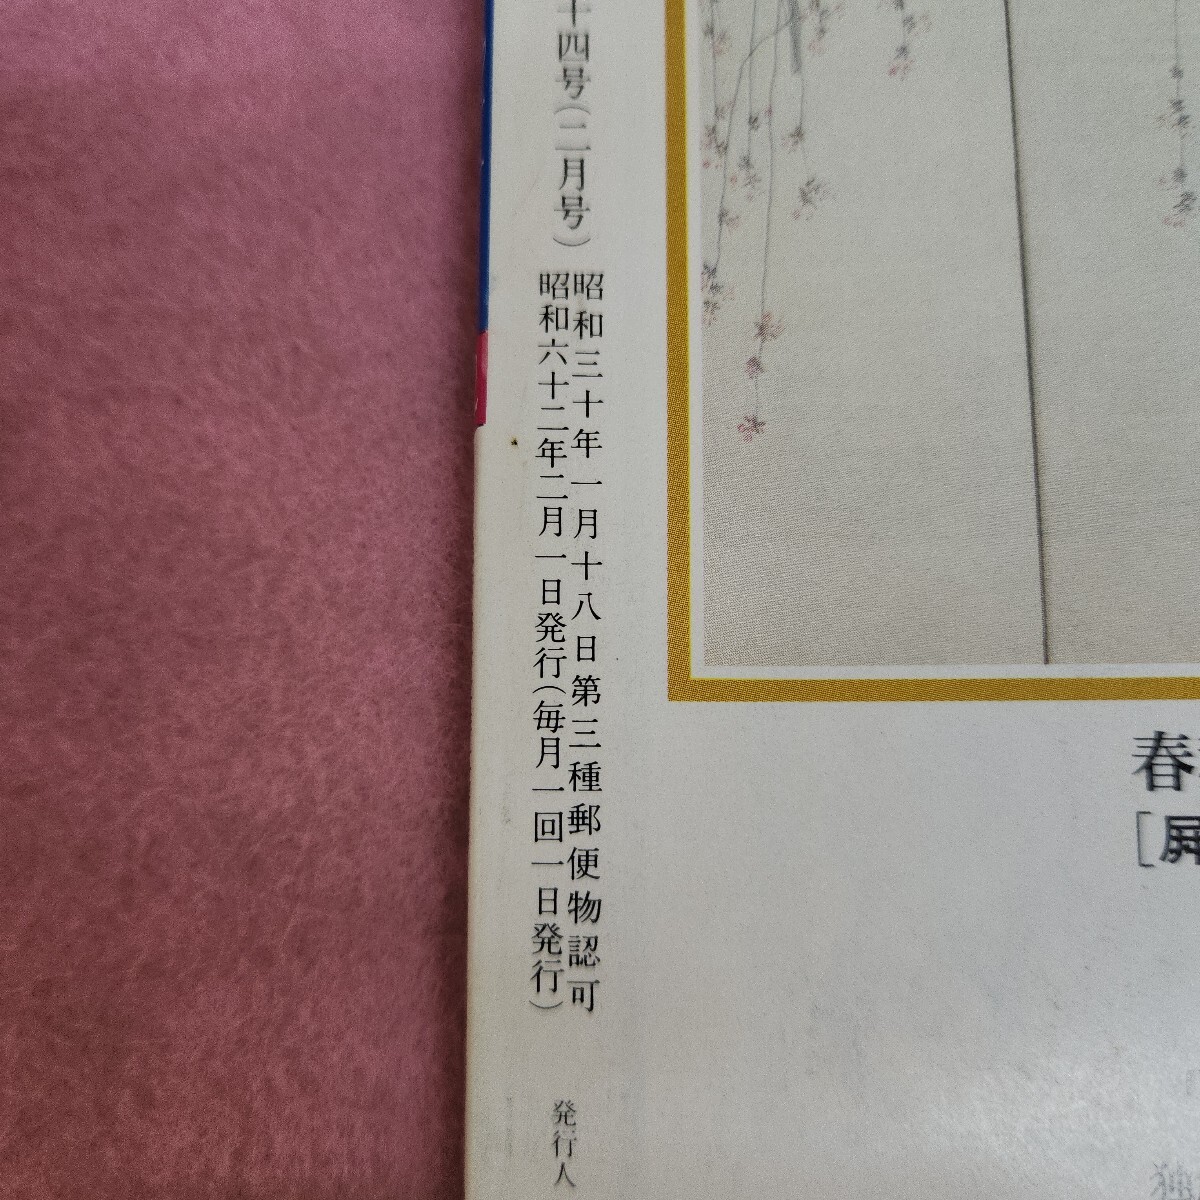 十四号(二月号)
昭和三十年一月十八日第三種郵便物認可
昭和六十二年二月一日発行(毎月一回一日発行)
発行人
春
[屏
独